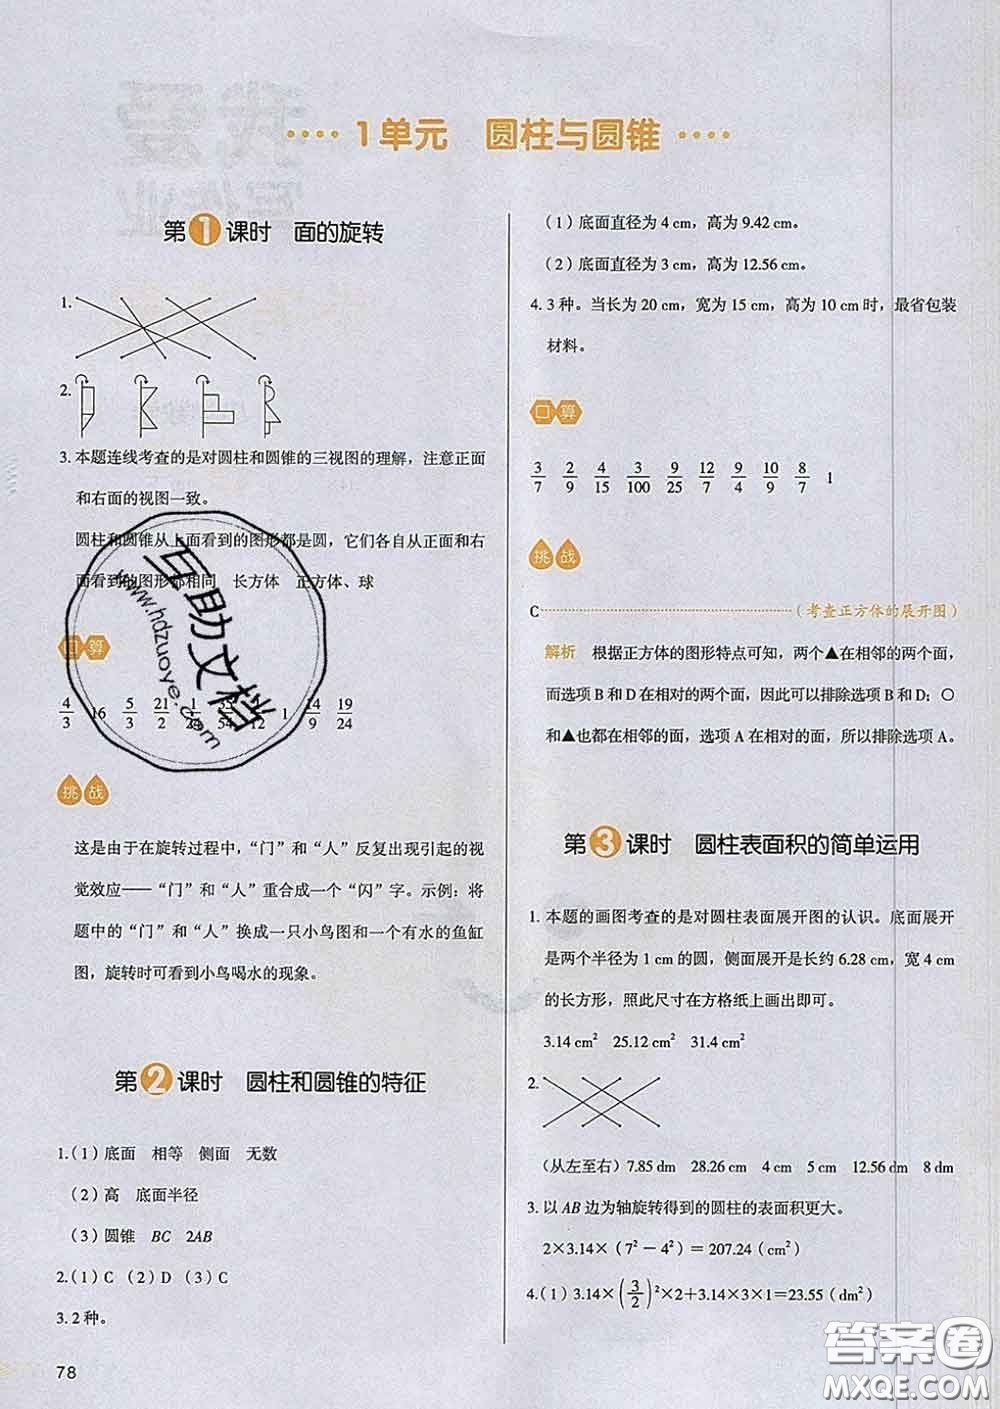 1单元 圆柱与圆锥
第1课时 面的旋转
1.
2.
3. 本题连线考查的是对圆柱和圆锥的三视图的理解，注意正面
和右面的视图一致。
圆柱和圆锥从上面看到的图形都是圆，它们各自从正面和右
面看到的图形都相同 长方体 正方体、球
口算
4/3 16 5/3 21/2 1 24/9 19/24
挑战
这是由于在旋转过程中，“门”和“人”反复出现引起的视
觉效应——“门”和“人”重合成一个“闪”字。示例：将
题中的“门”和“人”换成一只小鸟图和一个有水的鱼缸
图，旋转时可看到小鸟喝水的现象。
第2课时 圆柱和圆锥的特征
1.（1）底面 相等 侧面 无数
（2）高 底面半径
（3）圆锥 BC 2AB
2.（1）C （2）D （3）C
3.2种。
78
（1）底面直径为 4 cm，高为 9.42 cm。
（2）底面直径为 3 cm，高为 12.56 cm。
4. 3 种。当长为 20 cm，宽为 15 cm，高为 10 cm 时，最省包装
材料。
口算
3/7 2/9 4/15 3/100 9/25 12/7 9/4 10/9 8/7 1
挑战
C（考查正方体的展开图）
解析 根据正方体的图形特点可知，两个▲在相邻的两个面，
而选项 B 和 D 在相对的两个面，因此可以排除选项 B 和 D；○
和▲也都在相邻的面，选项 A 在相对的面，所以排除选项 A。
第3课时 圆柱表面积的简单运用
1. 本题的画图考查的是对圆柱表面展开图的认识。底面展开
是两个半径为 1 cm 的圆，侧面展开是长约 6.28 cm，宽 4 cm
的长方形，照此尺寸在方格纸上画出即可。
3.14 cm² 25.12 cm² 31.4 cm²
2.
（从左至右）7.85 dm 28.26 cm 4 cm 5 cm 12.56 dm 8 dm
3. 以 AB 边为轴旋转得到的圆柱的表面积更大。
2×3.14×（7²－4²）＝207.24（cm²）
4.（1）3.14×(3/2)²×2+3.14×3×1=23.55（dm²）
互助文档
www.hdzuoye.com
答案圈
MXQE.COM